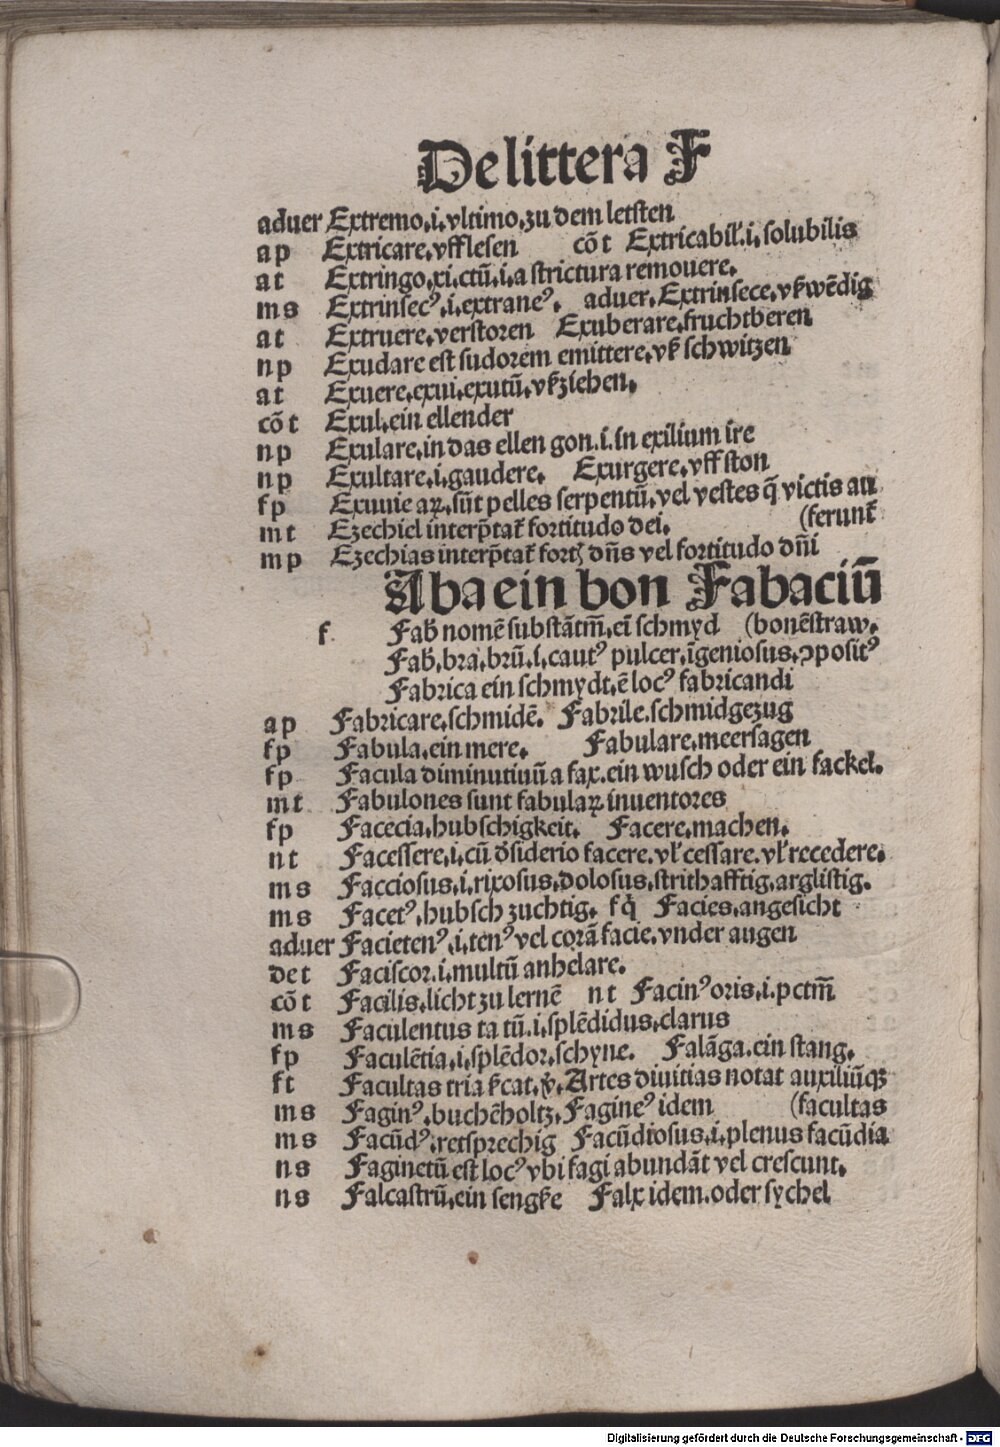 De littera F
aduer Extremo.i.vltimo.zu dem letsten
a p Extricare.vfflesen cōt Extricabiľ.i.solubilis
a t Extringo.xi.ctū.i.a strictura remouere.
m s Extrinsecꝰ.i.extraneꝰ. aduer.Extrinsece.vßwēdig
a t Extruere.verstoren Exuberare.fruchtberen
n p Exudare est sudorem emittere.vß schwitzen
a t Exuere.exui.exutū.vßziehen.
cō t Exul.ein ellender
n p Exulare.in das ellen gon.i.in exilium ire
n p Exultare.i.gaudere. Exurgere.vff ston
f p Exuuie aꝝ.sūt pelles serpentū.vel vestes q̄ victis au
m t Ezechiel interp̄tat̄ fortitudo dei. (ferunt̄
m p Ezechias interp̄tat̄ fortꝭ dn̄s vel fortitudo dn̄i
Aba ein bon Fabaciū
f. Fab̄ nomē substātm̄.eī schmyd (bonēstraw.
Fab̄.bra.brū.i.cautꝰ pulcer.īgeniosus.ↄpositꝰ
Fabrica ein schmydt.ē locꝰ fabricandi
a p Fabricare.schmidē. Fabrile.schmidgezug
f p Fabula.ein mere. Fabulare.meersagen
f p Facula diminutiuū a fax.ein wusch oder ein fackel.
m t Fabulones sunt fabulaꝝ inuentores
f p Facecia.hubschigkeit. Facere.machen.
n t Facessere.i.cū d̄siderio facere.vľ cessare.vľ recedere.
m s Facciosus.i.rixosus.dolosus.strithafftig.arglistig.
m s Facetꝰ.hubsch zuchtig. f q̄ Facies.angesicht
aduer Facietenꝰ.i.tenꝰ vel corā facie.vnder augen
de t Faciscor.i.multū anhelare.
cō t Facilis.licht zu lernē n t Facinꝰ oris.i.pctm̄
m s Faculentus ta tū.i.splēdidus.clarus
f p Faculētia.i.splēdor.schyne. Falāga.ein stang.
f t Facultas tria ßcat.v̄.Artes diuitias notat auxiliūqꝫ
m s Faginꝰ.buchēholtz.Fagineꝰ idem (facultas
m s Facūdꝰ.retsprechig Facūdiosus.i.plenus facūdia
n s Faginetū est locꝰ vbi fagi abundāt vel crescunt.
n s Falcastrū.ein sengße Falx idem.oder sychel
Digitalisierung gefördert durch die Deutsche Forschungsgemeinschaft - DFG